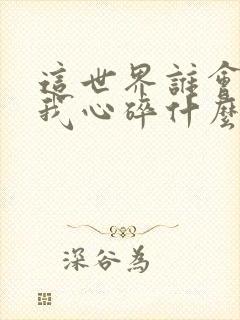 這世界誰會
我心碎什麼
深谷為